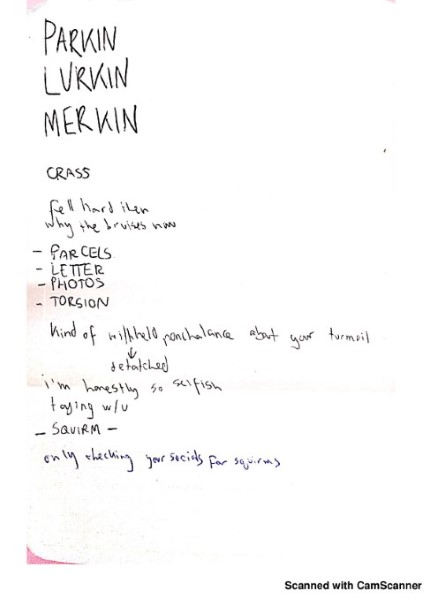 PARKIN
LURKIN
MERKIN
CRASS
fell hard then
why the bruises now
- PARCELS
- LETTER
- PHOTOS
- TORSION
kind of withheld nonchalance about your turmoil
↓
detatched
i'm honestly so selfish
toying w/u
- SQUIRM -
only checking your socials for squirms
Scanned with CamScanner